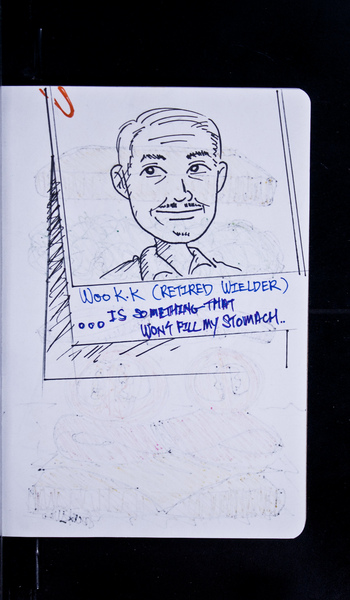 Woo K.K (RETIRED WIELDER)
... IS SOMETHING THAT
WON'T FILL MY STOMACH..